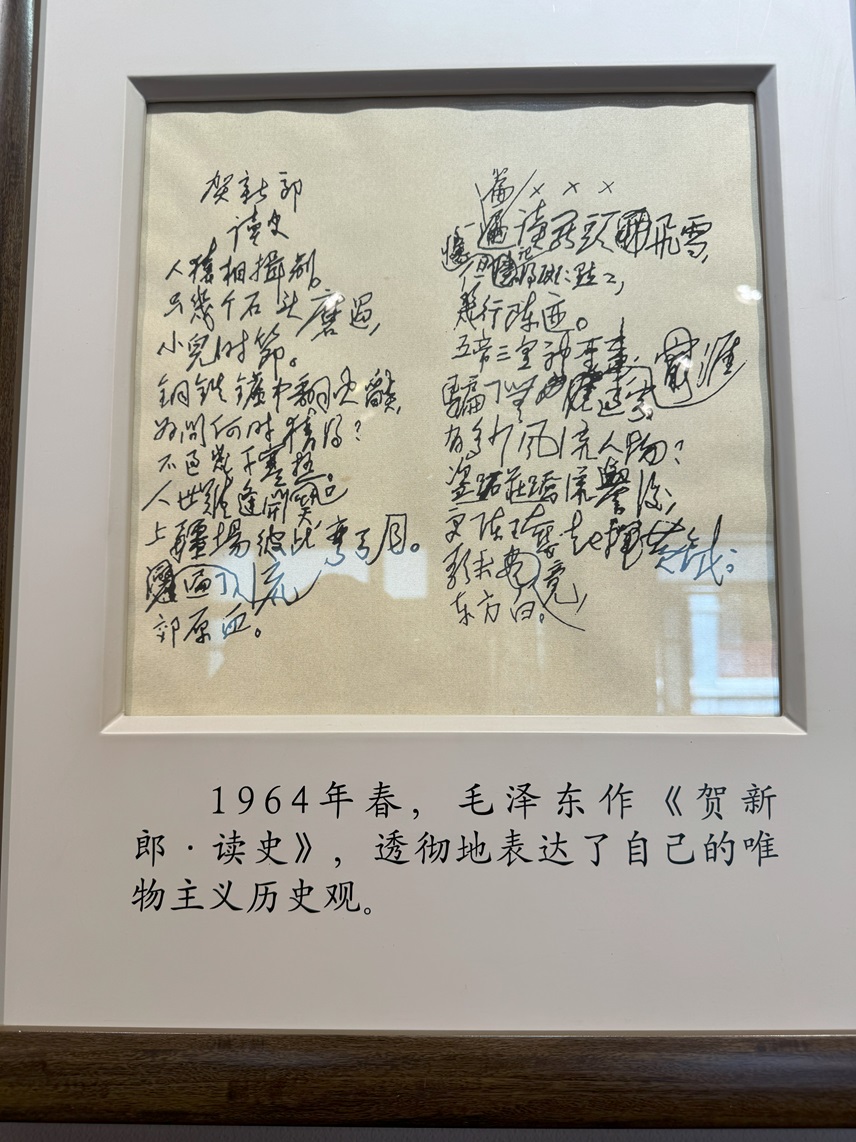 贺新郎
读史
人猿相揖别。
只几个石头磨过,
小儿时节。
铜铁炉中翻火焰,
为问何时猜得?
不过几千寒热。
人世难逢开口笑
上疆场彼此弯弓月。
流遍了
郊原血。
一篇读罢头飞雪,
但记得斑斑点点,
几行陈迹。
五帝三皇神圣事,
骗了无涯过客
有多少风流人物?
盗跖庄蹻流誉后,
更陈王奋起挥黄钺。
歌未竟,
东方白。
1964年春,毛泽东作《贺新
郎·读史》,透彻地表达了自己的唯
物主义历史观。